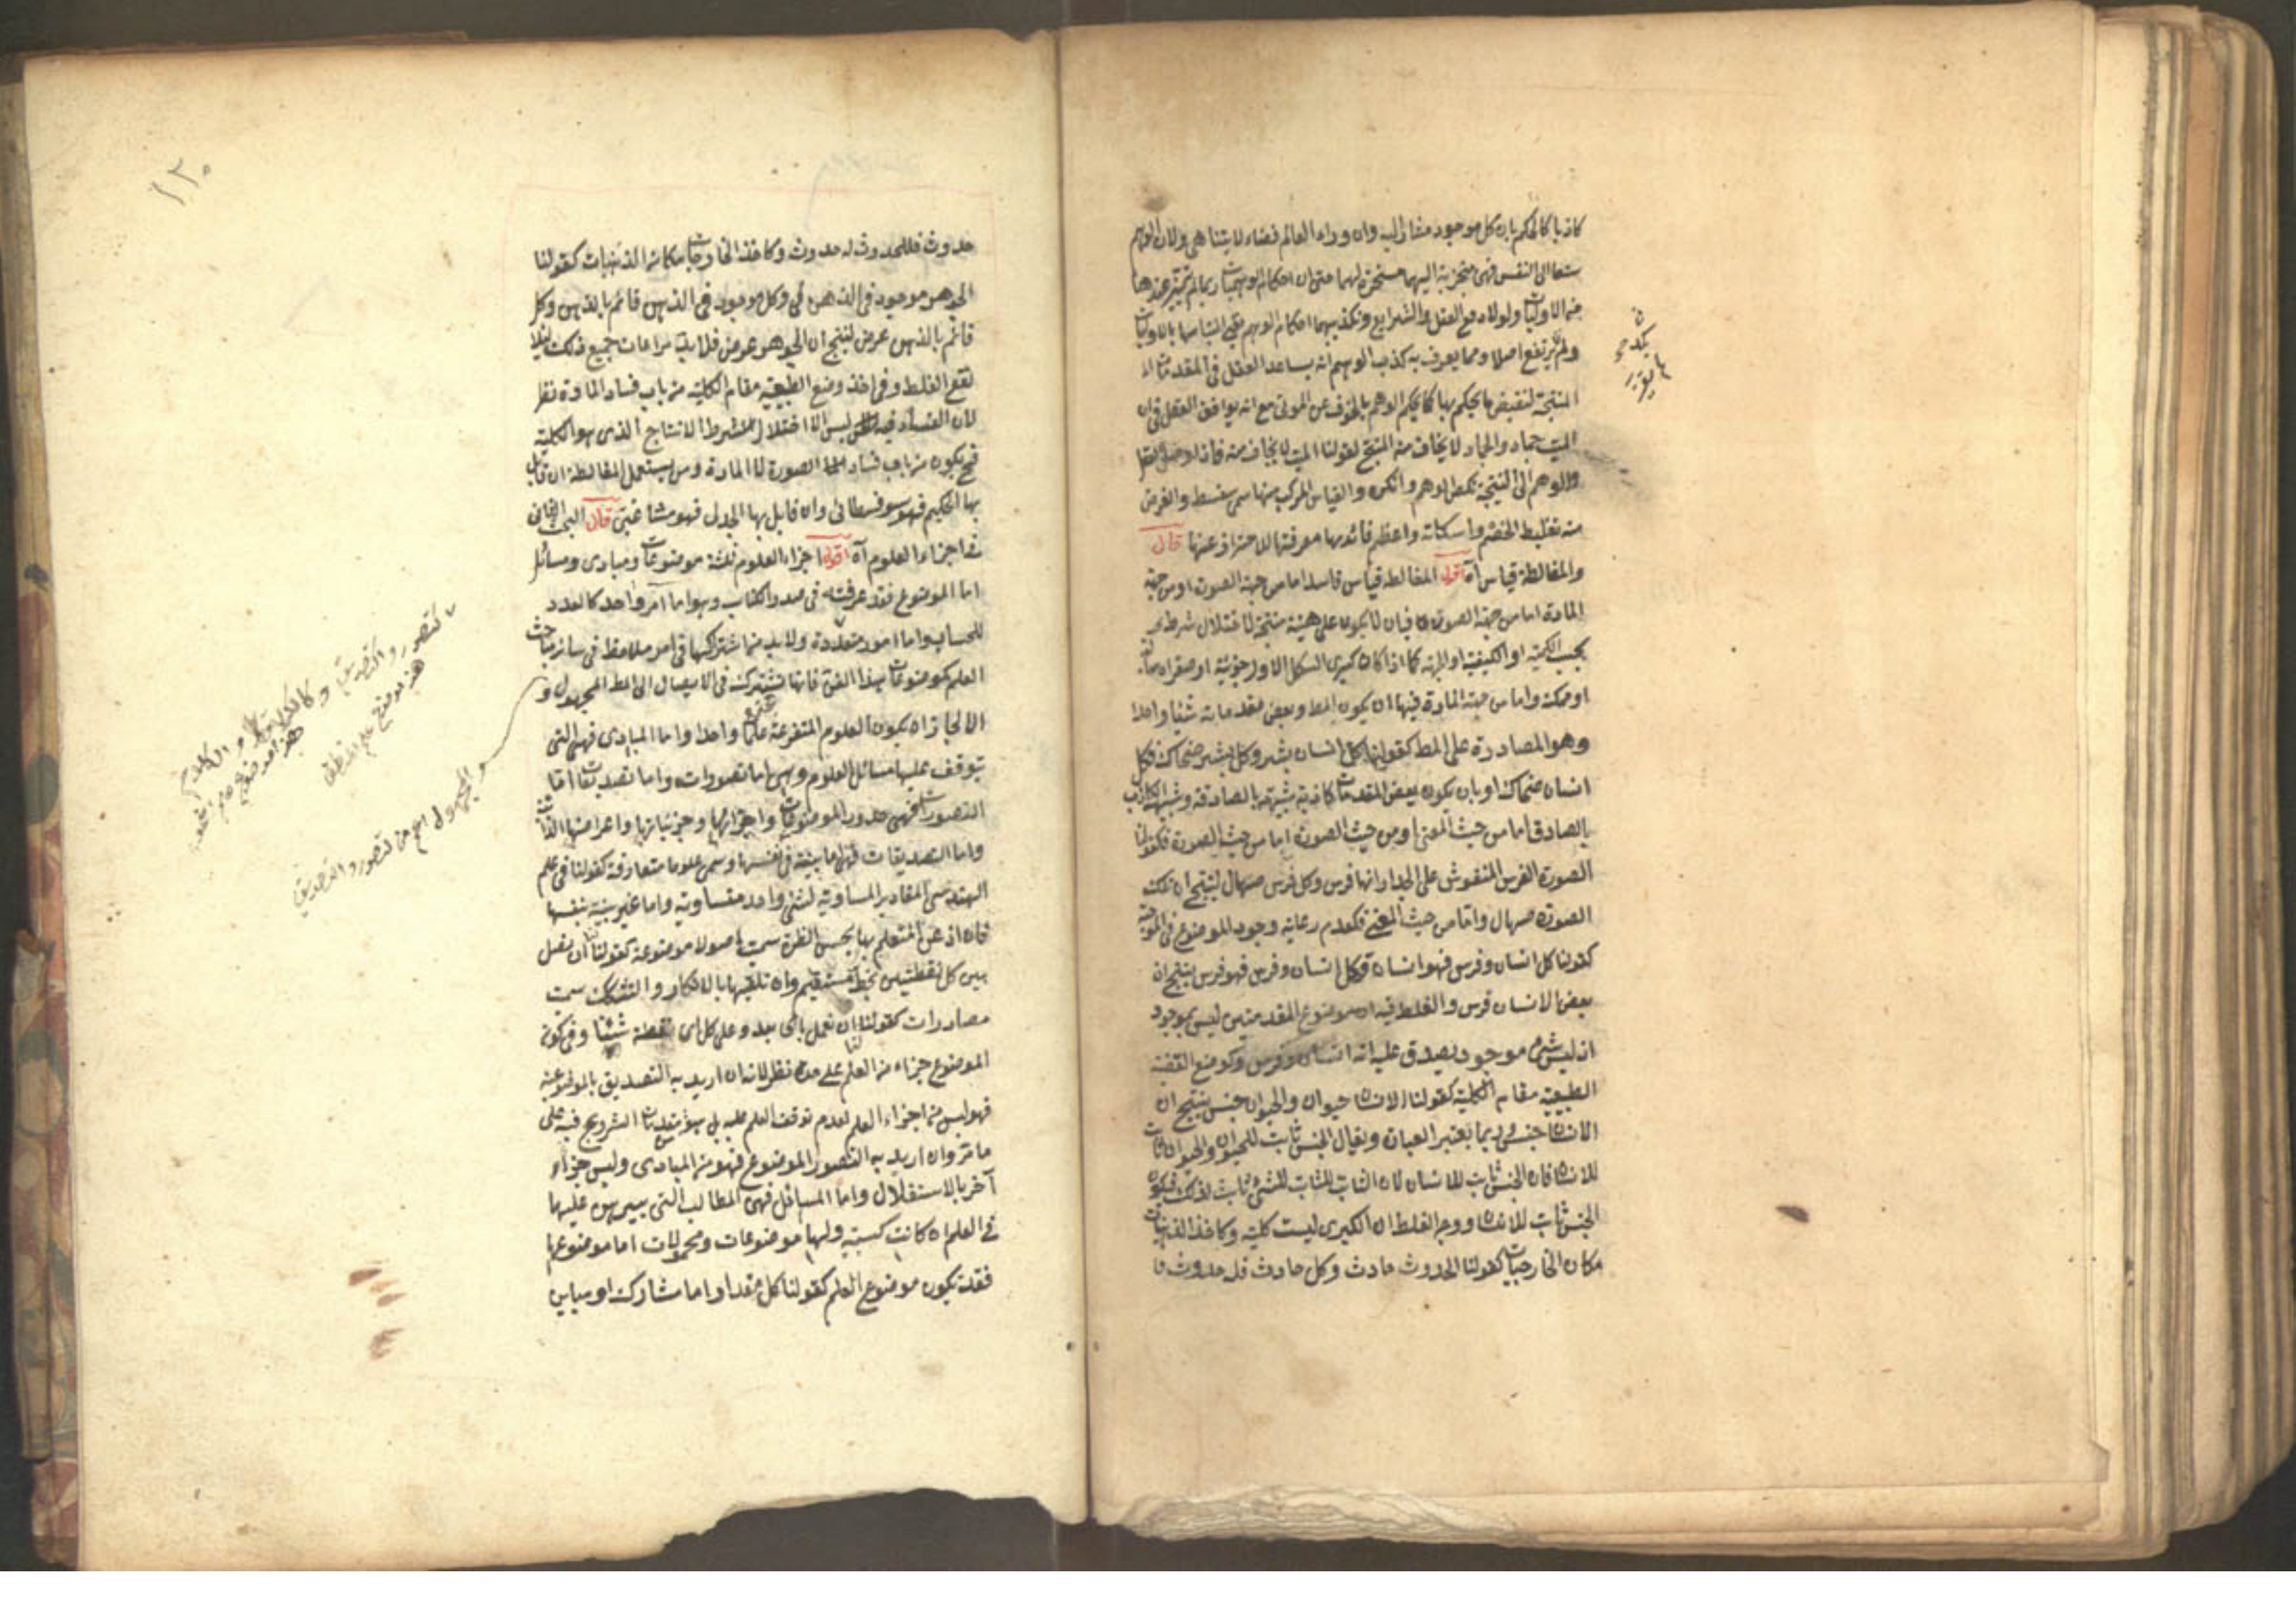 كاذبا كالحكم بان كل موجود مشار اليه وان وراء العالم فضاء لا يتناهى ولان الوهم
النفس فهى منجذبة اليها مسخرة لها حتى ان احكام الوهميات ربما لم تتميز عندها
من الاوليات ولولا دفع العقل والشرايع وتكذيبهما احكام الوهم بقى التباسها بالاوليات
ولم يرتفع اصلا ومما يعرف به كذب الوهم انه يساعد العقل فى المقدمات
المنتجة لنقيض ما يحكم بها كما يحكم الوهم بالخوف عن الموتى مع انه يوافق العقل فى ان
الميت جماد والجماد لا يخاف منه المنتج لقولنا الميت لا يخاف منه فاذا وصل العقل
والوهم الى النتيجة نكص الوهم وانكره والقياس المركب منها سمى سفسطة والغرض
منه تغليط الخصم واسكاته واعظم فائدتها معرفتها للاحتراز عنها قال
والمغالطة قياس آه اقول المغالطة قياس فاسد اما من جهة الصورة او من جهة
المادة اما من جهة الصورة فبان لا يكون على هيئة منتجة لاختلال شرط
بحسب الكمية او الكيفية او الجهة كما اذا كان كبرى الشكل الاول جزئية او صغراه سالبة
او ممكنة واما من جهة المادة فبها ان يكون المط وبعض مقدماته شيئا واحدا
وهو المصادرة على المط كقولنا كل انسان بشر وكل بشر ضحاك فكل
انسان ضحاك او بان يكون بعض المقدمات كاذبة شبيهة بالصادقة وشبه الكاذب
بالصادق اما من حيث المعنى او من حيث الصورة اما من حيث الصورة فكقولنا
الصورة الفرس المنقوش على الجدار انها فرس وكل فرس صهال لينتج ان تلك
الصورة صهال واما من حيث المعنى فكعدم رعاية وجود الموضوع فى الموجبة
كقولنا كل انسان وفرس فهو انسان وكل انسان وفرس فهو فرس ينتج ان
بعض الانسان فرس والغلط فيه ان موضوع المقدمتين ليس بموجود
اذ ليس شئ موجود يصدق عليه انه انسان وفرس وكوضع القضية
الطبيعية مقام الكلية كقولنا الانسان حيوان والحيوان جنس ينتج ان
الانسان جنس وربما يغير العبارة ويقال الجنس ثابت للحيوان والحيوان ثابت
للانسان فان الجنس ثابت للانسان لان الثابت للثابت للشئ ثابت لذلك فيكون
الجنس ثابت للانسان ووجه الغلط ان الكبرى ليست كلية وكاخذ الذهنيات
مكان الخارجيات كقولنا الحدوث حادث وكل حادث فله حدوث فا
١٢٠
حدوث فللحدوث له حدوث وكاخذ الخارجيات مكان الذهنيات كقولنا
الجوهر موجود فى الذهن وكل موجود فى الذهن قائم بالذهن وكل
قائم بالذهن عرض لينتج ان الجوهر عرض فلا بد من مراعات جميع ذلك لئلا
تقع الغلط وفى اخذ وضع الطبيعية مقام الكلية من باب فساد المادة نظر
لان الفساد فيه ليس الا اختلال الشرط الانتاج الذى هو الكلية
فح يكون من باب فساد الصورة لا المادة ومن يستعمل المغالطة ان قابل
بها الحكيم فهو سوفسطائى وان قابل بها الجدلى فهو مشاغبى قال البحث الثانى
فى اجزاء العلوم آه اقول اجزاء العلوم ثلثة موضوعات ومبادى ومسائل
اما الموضوع فقد عرفته فى صدر الكتاب وهو اما امر واحد كالعدد
للحساب واما امور متعددة ولا بد من اشتراكها فى امر ملاحظ فى سائر مباحث
العلم كموضوعات هذا الفن فانها تشترك فى الايصال الى المط المجهول و
الا لجاز ان يكون العلوم المتفرعة علما واحدا واما المبادى فهى التى
يتوقف عليها مسائل العلوم وهى اما تصورات واما تصديقات اما
التصورات فهى حدود الموضوعات واجزائها وجزئياتها واعراضها الذاتية
واما التصديقات فهى اما بينة فى نفسها وسمى علوما متعارفة كقولنا فى علم
الهندسى المقادير المساوية لشئ واحد متساوية واما غير بينة بنفسها
فان اذعن المتعلم بها بحسن الظن سميت اصولا موضوعة كقولنا ان نصل
بين كل نقطتين بخط مستقيم وان تلقيها بالانكار والتشكك سميت
مصادرات كقولنا ان نعمل باى بعد وعلى كل اى نقطة شئنا وفى كون
الموضوع جزاء من العلم على حدة نظر لانه ان اريد به التصديق بالموضوعية
فهو ليس من اجزاء العلم لعدم توقف العلم عليه بل هو مقدمات الشروع فيه على
ما مر وان اريد به التصور الموضوع فهو من المبادى وليس جزاء
آخر بالاستقلال واما المسائل فهى المطالب التى يبرهن عليها
فى العلم ان كانت كسبية ولها موضوعات ومحمولات اما موضوعها
فقد يكون موضوع العلم كقولنا كل مقدار اما مشارك او مباين
تصور والتصديق
هذا موضع علم المنطق
والمجهول اعم من تصور والتصديق